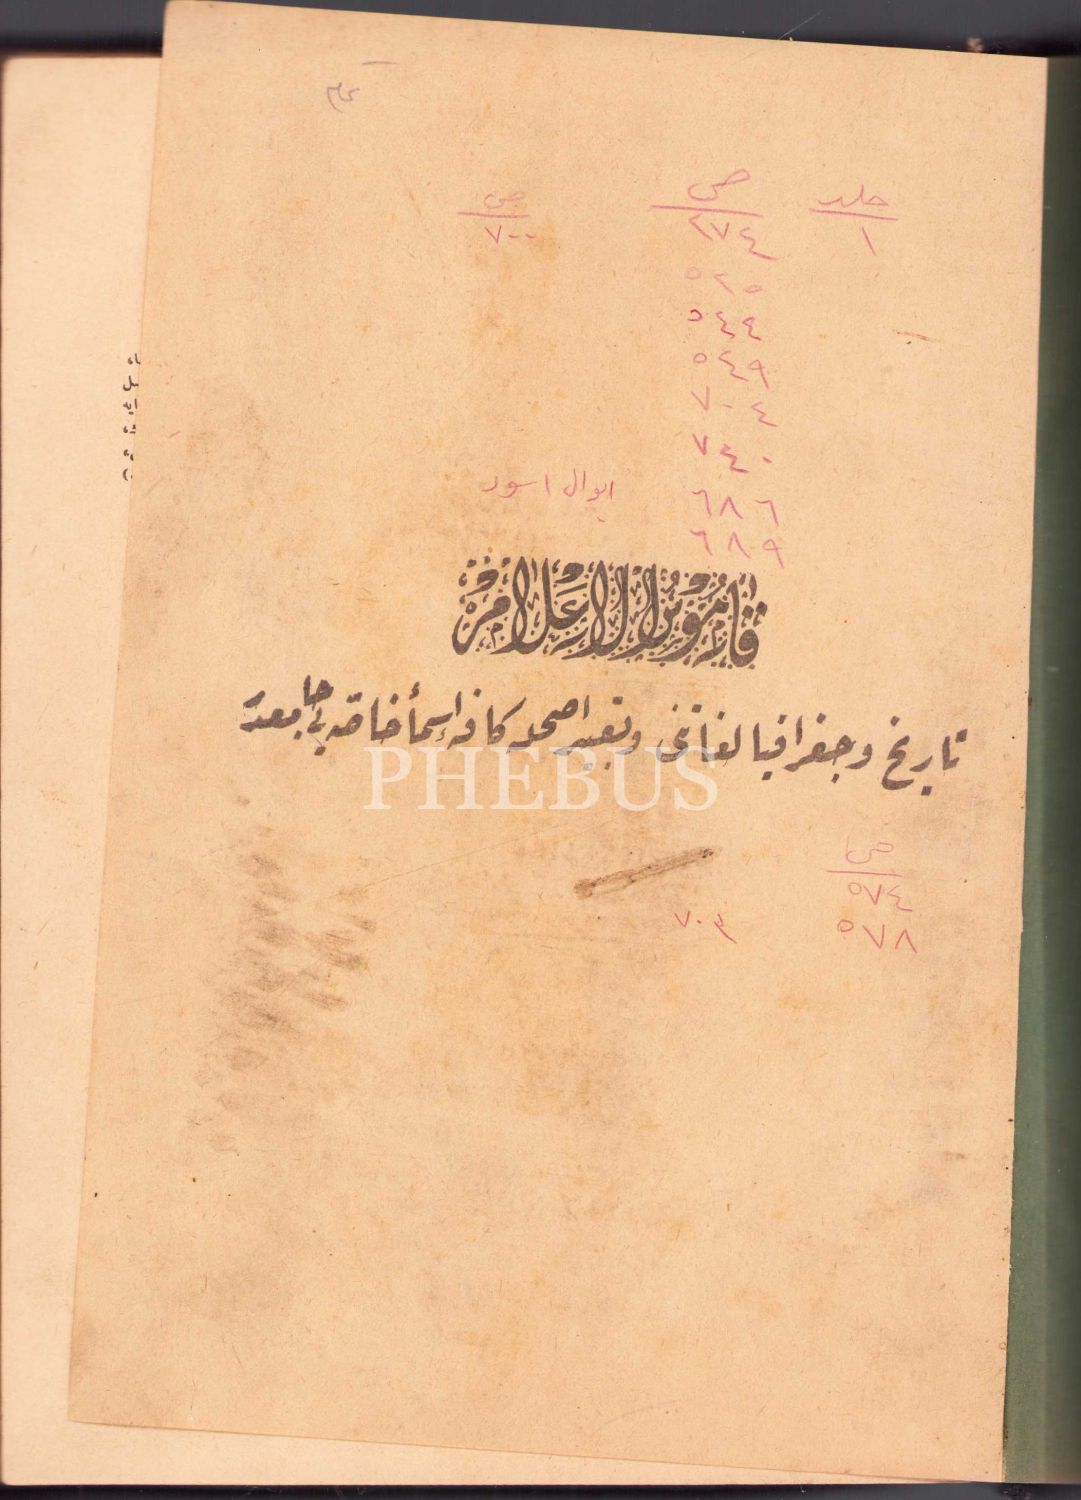 جلد
١
ص
٢٧٤
٥٢٥
٥٤٤
٥٤٩
٧٠٤
٧٤٠
٦٨٦
٦٨٩
ص
٧٠٠
اسود
قاموس الاعلام
تاريخ و جغرافيا لغاتنى و تعبير اصحله كافهٔ اسماء خاصه يى جامعدر
PHEBUS
ص
٥٧٤
٥٧٨